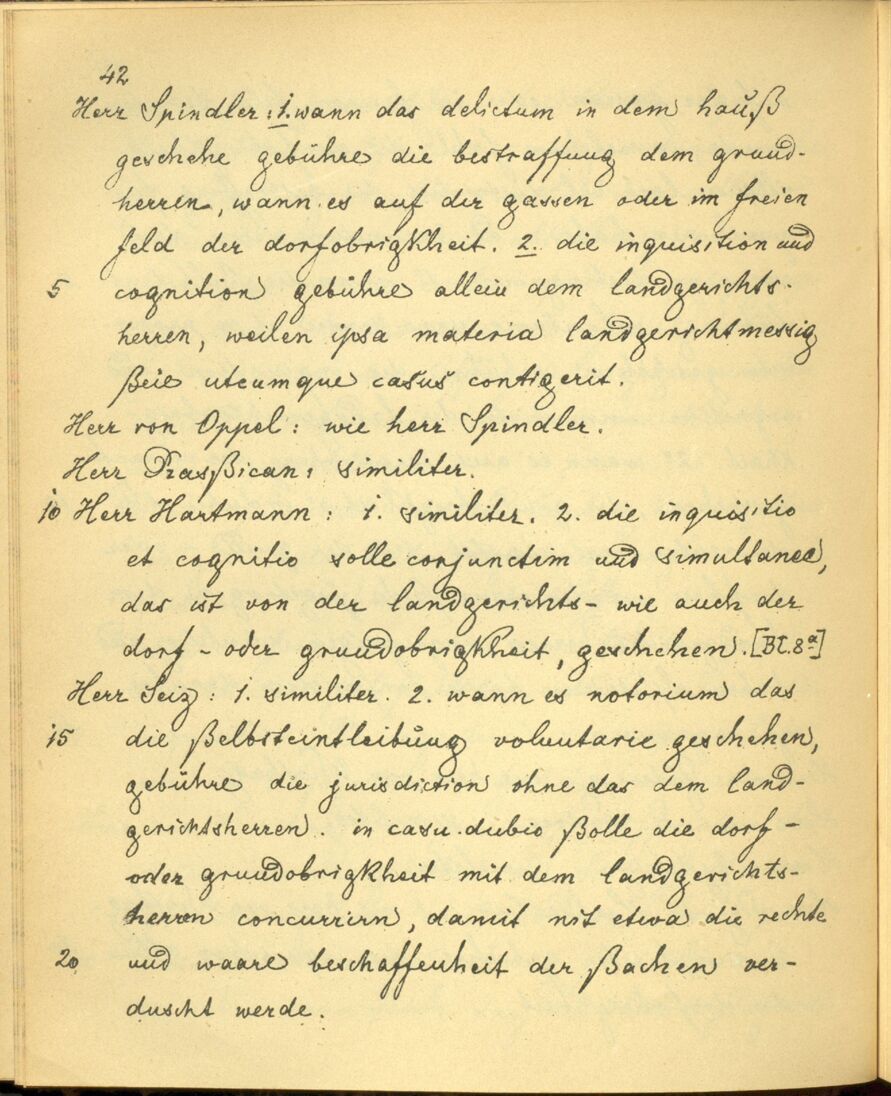 42
Herr Spindler: 1. wann das delictum in dem hauß
geschehe gebühre die bestraffung dem grund-
herren, wann es auf der gassen oder im freien
feld der dorfobrigkheit. 2. die inquisition und
5 cognition gebühre allein dem landgerichts-
herren, weilen ipsa materia landgerichtmessig
ßeie utcumque casus contigerit.
Herr von Oppel: wie herr Spindler.
Herr Praßican: similiter.
10 Herr Hartmann: 1. similiter. 2. die inquisitio
et cognitio solle conjunctim und simultanee,
das ist von der landgerichts- wie auch der
dorf- oder grundobrigkheit, geschehen. [Bl. 8a]
Herr Seiz: 1. similiter. 2. wann es notorium das
15 die ßelbsteintleibung voluntarie geschehen,
gebühre die jurisdiction ohne das dem land-
gerichtsherren. in casu dubio ßolle die dorf-
oder grundobrigkheit mit dem landgerichts-
herren concurrirn, damit nit etwa die rechte
20 und waare beschaffenheit der ßachen ver-
duscht werde.